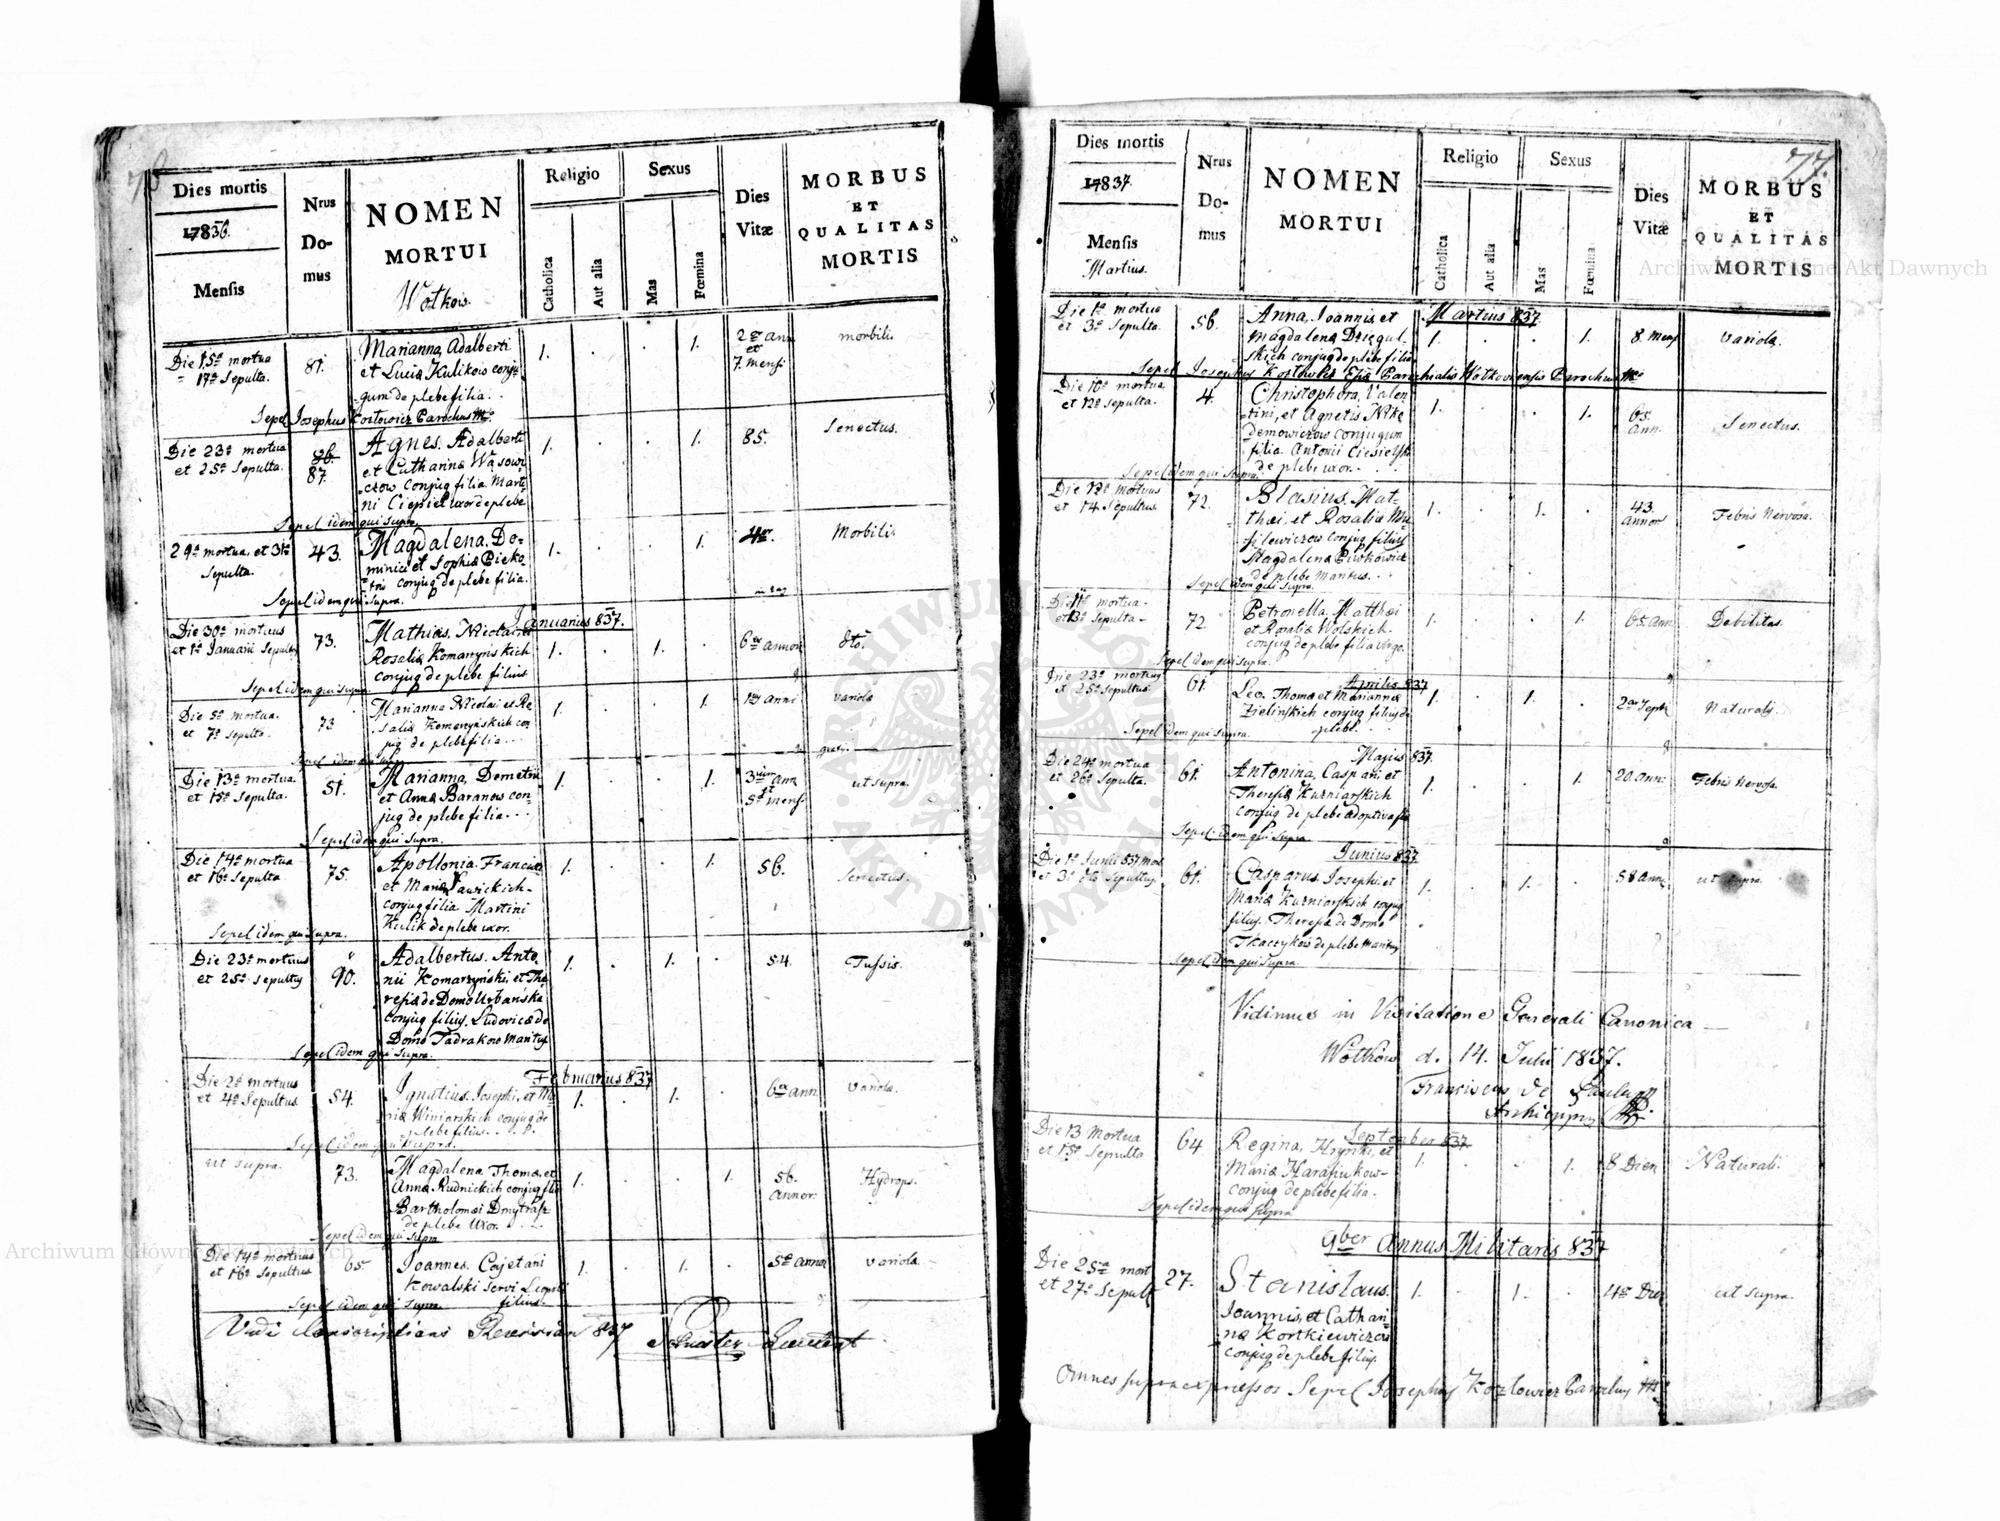 76
Dies mortis
17836.
Mensis
Nrus
Do-
mus
NOMEN
MORTUI
Wołkow
Religio
Catholica
Aut alia
Sexus
Mas
Fœmina
Dies
Vitæ
MORBUS
ET
QUALITAS
MORTIS
Die 15a mortua
17a Sepulta.
81.
Marianna, Adalberti
et Lucia Kulikow conju
gum de plebe filia.
1. . . 1.
2 ann
et
7. mensi
morbili.
Sepel Josephus Kozłowicz Parochus
Die 23a mortua
et 25a Sepulta.
86.
87.
Agnes. Adalberti
et Catharina Wąsowi
czow conjug filia Marti
ni Ciepiel uxor de plebe
1. . . 1.
85.
Senectus.
Sepel idem qui supra.
29a mortua, et 31a
Sepulta.
43.
Magdalena. Do-
minici et Sophia
conjug de plebe filia.
1. . . 1.
Morbili.
Sepel idem qui supra.
Januarius 837.
Die 30a mortuus
et 1a Januarii Sepultus
73.
Mathias, Nicolai et
Rosalia Komarzynskich
conjug de plebe filius
1. . 1. .
6 annor
dto.
Sepel idem qui supra
Die 5a mortua.
et 7a Sepulta.
73
Marianna Nicolai et Ro
salia Komarzyńskich con
jug de plebe filia
1. . . 1.
anni
variola
Sepel idem qui supra
Die 13a mortua
et 15a Sepulta.
51.
Marianna, Demetrii
et Anna Baranow con
jug de plebe filia
1. . . 1.
3 ann
et
5 mens
ut supra.
Sepel idem qui supra.
Die 14a mortua
et 16a Sepulta
75.
Apollonia Francisci
et Maria
conjug filia Martini
Kulik de plebe uxor.
1. . . 1.
56.
Senectus.
Sepel idem qui supra.
Die 23a mortuus
et 25a Sepultus
90.
Adalbertus. Anto-
nii Komarzyński, et The
resia de Domo Urbańska
conjug filius. Ludovica de
Domo Tadrakow Maritus
1. . 1. .
54.
Tussis.
Sepel idem qui supra.
Februarius 837
Die 2a mortuus
et 4a Sepultus
54.
Ignatius. Josephi, et Ma
ria Winiarskich conjug de
plebe filius
1. . 1. .
6 ann
Variola.
Sepel idem qui supra.
ut supra.
73.
Magdalena Thoma, et
Anna Rudnickich conjug filia
Bartholomæi
de plebe Uxor.
1. . . 1.
56.
annor.
Hydrops.
Sepel idem qui supra
Die 14a mortuus
et 16a Sepultus
65
Joannes. Cajetani
Kowalski Servi
filius.
1. . 1. .
5 annor
variola.
Sepel idem qui supra
Vidi Conscriptions Revision 837
77.
Dies mortis
17837.
Mensis
Martius.
Nrus
Do-
mus
NOMEN
MORTUI
Religio
Catholica
Aut alia
Sexus
Mas
Fœmina
Dies
Vitæ
MORBUS
ET
QUALITAS
MORTIS
Martius 837
Die 1a mortua
et 3a Sepulta.
56.
Anna, Joannis et
Magdalena
conjug de plebe filia
1. . . 1.
8. mens
variola.
Sepel Josephus Kozłowicz Parochialis Wołkoviensis Parochus
Die 10a mortua
et 12a Sepulta.
4.
Christophora, Valen-
tini, et Agnetis
conjugum
filia Antonii Ciesielski
de plebe uxor.
1. . . 1.
65.
ann.
Senectus.
Sepel idem qui supra.
Die 12a mortuus
et 14 Sepultus
72.
Blasius. Mat-
thæi, et Rosalia
conjug filius
Magdalena
de plebe Maritus.
1. . 1. .
43.
annor
Febris Nervosa.
Sepel idem qui supra.
Die 11a mortua
et 13a Sepulta
72
Petronella. Matthæi
et Rosalia Wolskich
conjug de plebe filia virgo
1. . . 1.
65. ann
Debilitas.
Sepel idem qui supra.
Aprilis 837
Die 23a mortuus
et 25a Sepultus
61.
Leo. Thoma et Marianna
Zielinskich conjug filius de
plebe.
1. . 1. .
Naturalis.
Sepel idem qui supra.
Majus 837.
Die 24a mortua
et 26a Sepulta.
61.
Antonina, Caspari et
Theresia Kuzniarskich
conjug de plebe adoptiva filia
1. . . 1.
20. anni
Febris Nervosa.
Sepel idem qui supra.
Junius 837
Die 1a Junii 837 mort
et 3a Sepultus.
61.
Casparus. Josephi et
Maria Kuzniarskich conjug
filius. Theresia de Domo
Tkaczykow de plebe Maritus
1. . 1. .
58 ann
ut supra.
Sepel idem qui supra.
Vidimus in Visitatione Generali Canonica
Wołkow d. 14. Julii 1837.
Franciscus de
September 837
Die 13 Mortua
et 15a Sepulta
64
Regina, Hrynki, et
Maria Harasiukow
conjug de plebe filia.
1. . . 1.
8 Dier
Naturali.
Sepel idem qui supra
9ber Annus Militaris 837
Die 25a mort
et 27a Sepult
27.
Stanislaus.
Joannis, et Cathari
na Kortkiewiczow
conjug de plebe filius.
1. . 1. .
4 Dier
ut supra.
Omnes supra expressos Sepel Josephus Kozłowicz Parochus
ARCHIWUM GŁÓWNE AKT DAWNYCH
Archiwum Główne Akt Dawnych
Archiwum Główne Akt Dawnych